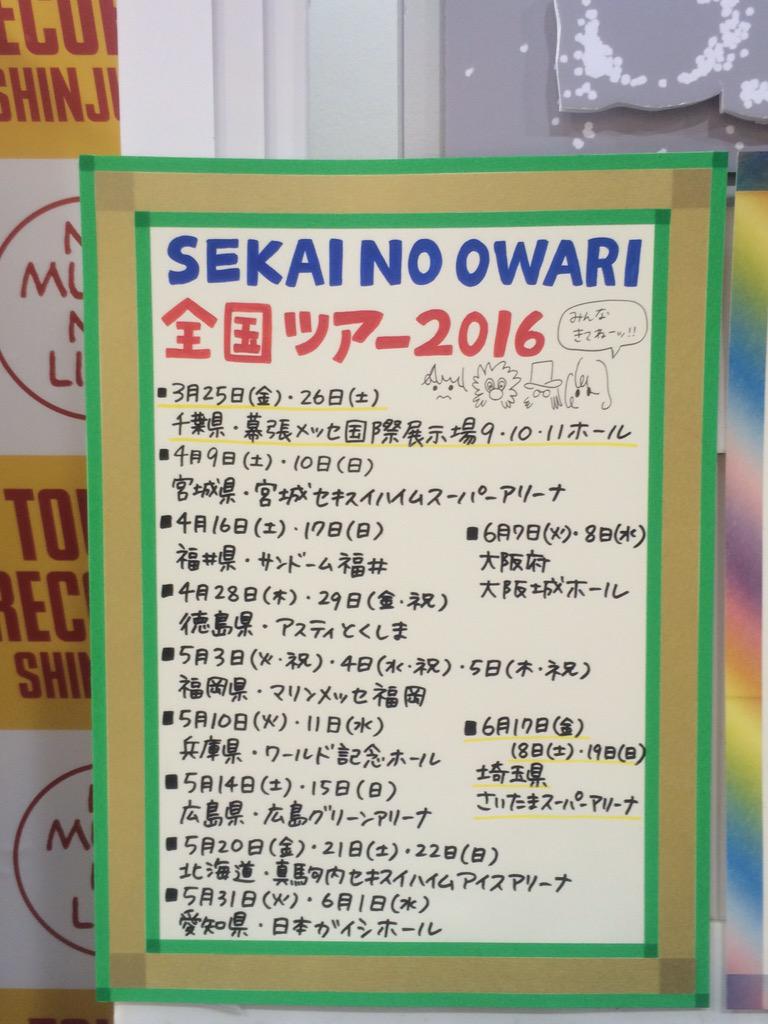 SEKAI NO OWARI
全国ツアー2016
みんな
きてねーッ!!
■3月25日(金)・26日(土)
千葉県・幕張メッセ国際展示場9・10・11ホール
■4月9日(土)・10日(日)
宮城県・宮城セキスイハイムスーパーアリーナ
■4月16日(土)・17日(日)
福井県・サンドーム福井
■4月28日(木)・29日(金・祝)
徳島県・アスティとくしま
■5月3日(火・祝)・4日(水・祝)・5日(木・祝)
福岡県・マリンメッセ福岡
■5月10日(火)・11日(水)
兵庫県・ワールド記念ホール
■5月14日(土)・15日(日)
広島県・広島グリーンアリーナ
■5月20日(金)・21日(土)・22日(日)
北海道・真駒内セキスイハイムアイスアリーナ
■5月31日(火)・6月1日(水)
愛知県・日本ガイシホール
■6月7日(火)・8日(水)
大阪府
大阪城ホール
■6月17日(金)
18日(土)・19日(日)
埼玉県
さいたまスーパーアリーナ
SHINJU
TO
REC
SHIN